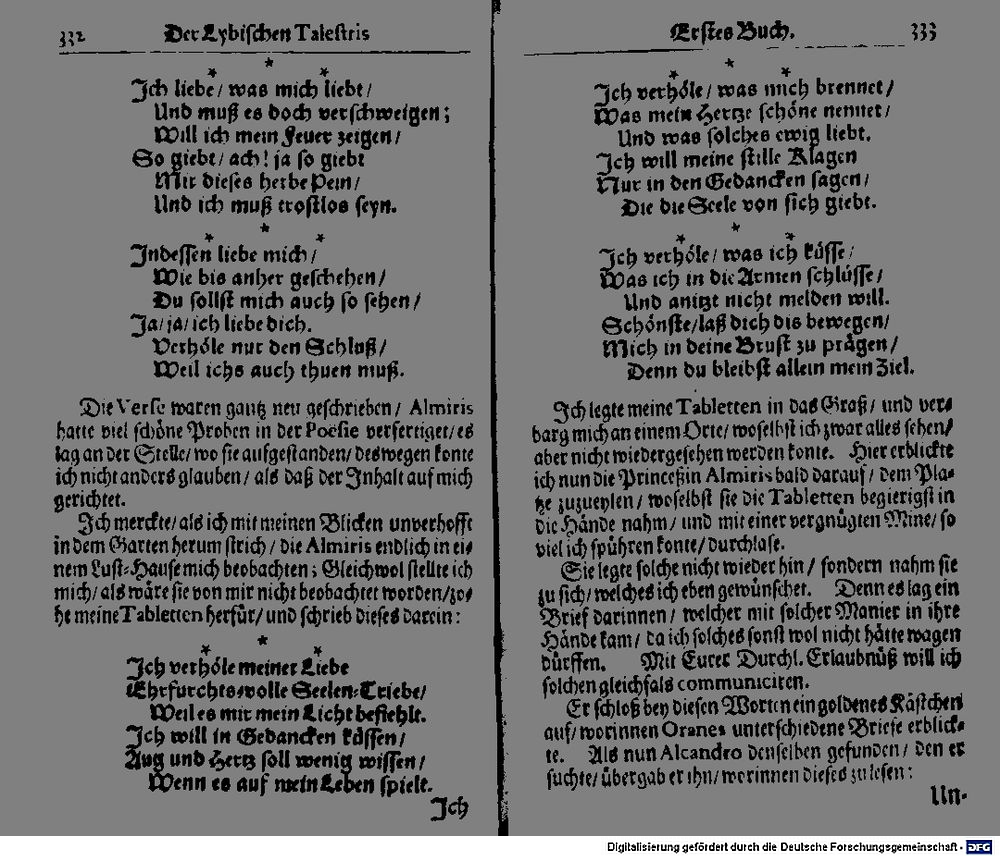 332 Der Lybischen Talestris
* * *
Ich liebe / was mich liebt /
Und muß es doch verschweigen;
Will ich mein Feuer zeigen /
So giebt / ach! ja so giebt
Mir dieses herbe Pein /
Und ich muß trostlos seyn.
* * *
Indessen liebe mich /
Wie bis anher geschehen /
Du sollst mich auch so sehen /
Ja / ja / ich liebe dich.
Verhöle nur den Schluß /
Weil ichs auch thuen muß.
Die Verse waren gantz neu geschrieben / Almiris
hatte viel schöne Proben in der Poësie verfertiget / es
lag an der Stelle / wo sie aufgestanden / deswegen konte
ich nicht anders glauben / als daß der Inhalt auf mich
gerichtet.
Ich merckte / als ich mit meinen Blicken unverhofft
in dem Garten herum strich / die Almiris endlich in ei-
nem Lust-Hause mich beobachten; Gleichwol stellte ich
mich / als wäre sie von mir nicht beobachtet worden / zo-
he meine Tabletten herfür / und schrieb dieses darein:
* * *
Ich verhöle meiner Liebe
Ehrfurchts-volle Seelen-Triebe /
Weil es mir mein Licht befiehlt.
Ich will in Gedancken küssen /
Aug und Hertz soll wenig wissen /
Wenn es auf mein Leben spielt.
Ich
Erstes Buch. 333
* * *
Ich verhöle / was mich brennet /
Was mein Hertze schöne nennet /
Und was solches ewig liebt.
Ich will meine stille Klagen
Nur in den Gedancken sagen /
Die die Seele von sich giebt.
* * *
Ich verhöle / was ich küsse /
Was ich in die Armen schlüsse /
Und anitzt nicht melden will.
Schönste / laß dich dis bewegen /
Mich in deine Brust zu prägen /
Denn du bleibst allein mein Ziel.
Ich legte meine Tabletten in das Graß / und ver-
barg mich an einem Orte / woselbst ich zwar alles sehen /
aber nicht wiedergesehen werden konte. Hier erblickte
ich nun die Princeßin Almiris bald darauf / dem Pla-
tze zuzueylen / woselbst sie die Tabletten begierigst in
die Hände nahm / und mit einer vergnügten Mine / so
viel ich spühren konte / durchlase.
Sie legte solche nicht wieder hin / sondern nahm sie
zu sich / welches ich eben gewünschet. Denn es lag ein
Brief darinnen / welcher mit solcher Manier in ihre
Hände kam / da ich solches sonst wol nicht hätte wagen
dürffen. Mit Eurer Durchl. Erlaubnüß will ich
solchen gleichfals communiciren.
Er schloß bey diesen Worten ein goldenes Kästchen
auf / worinnen Oranes unterschiedene Briefe erblick-
te. Als nun Alcandro denselben gefunden / den er
suchte / übergab er ihn / worinnen dieses zu lesen:
Un-
Digitalisierung gefördert durch die Deutsche Forschungsgemeinschaft - DFG